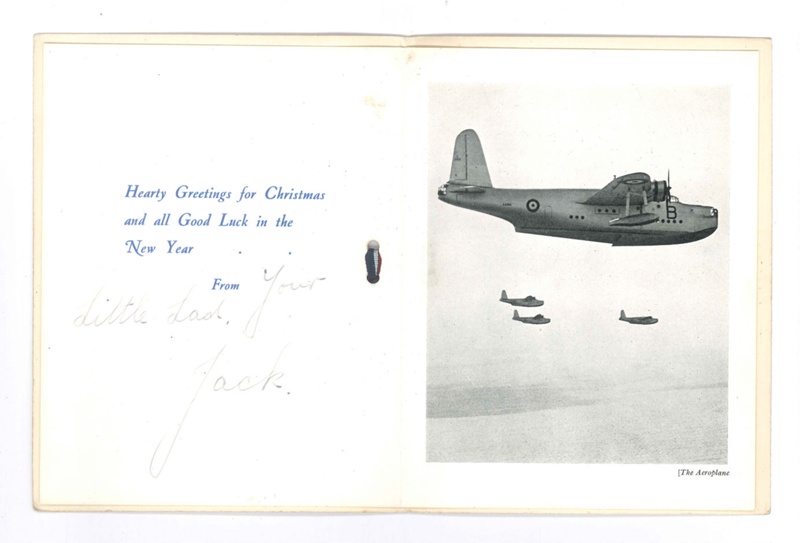 Hearty Greetings for Christmas
and all Good Luck in the
New Year
From Your
Little Lad.
Jack.
B
[The Aeroplane